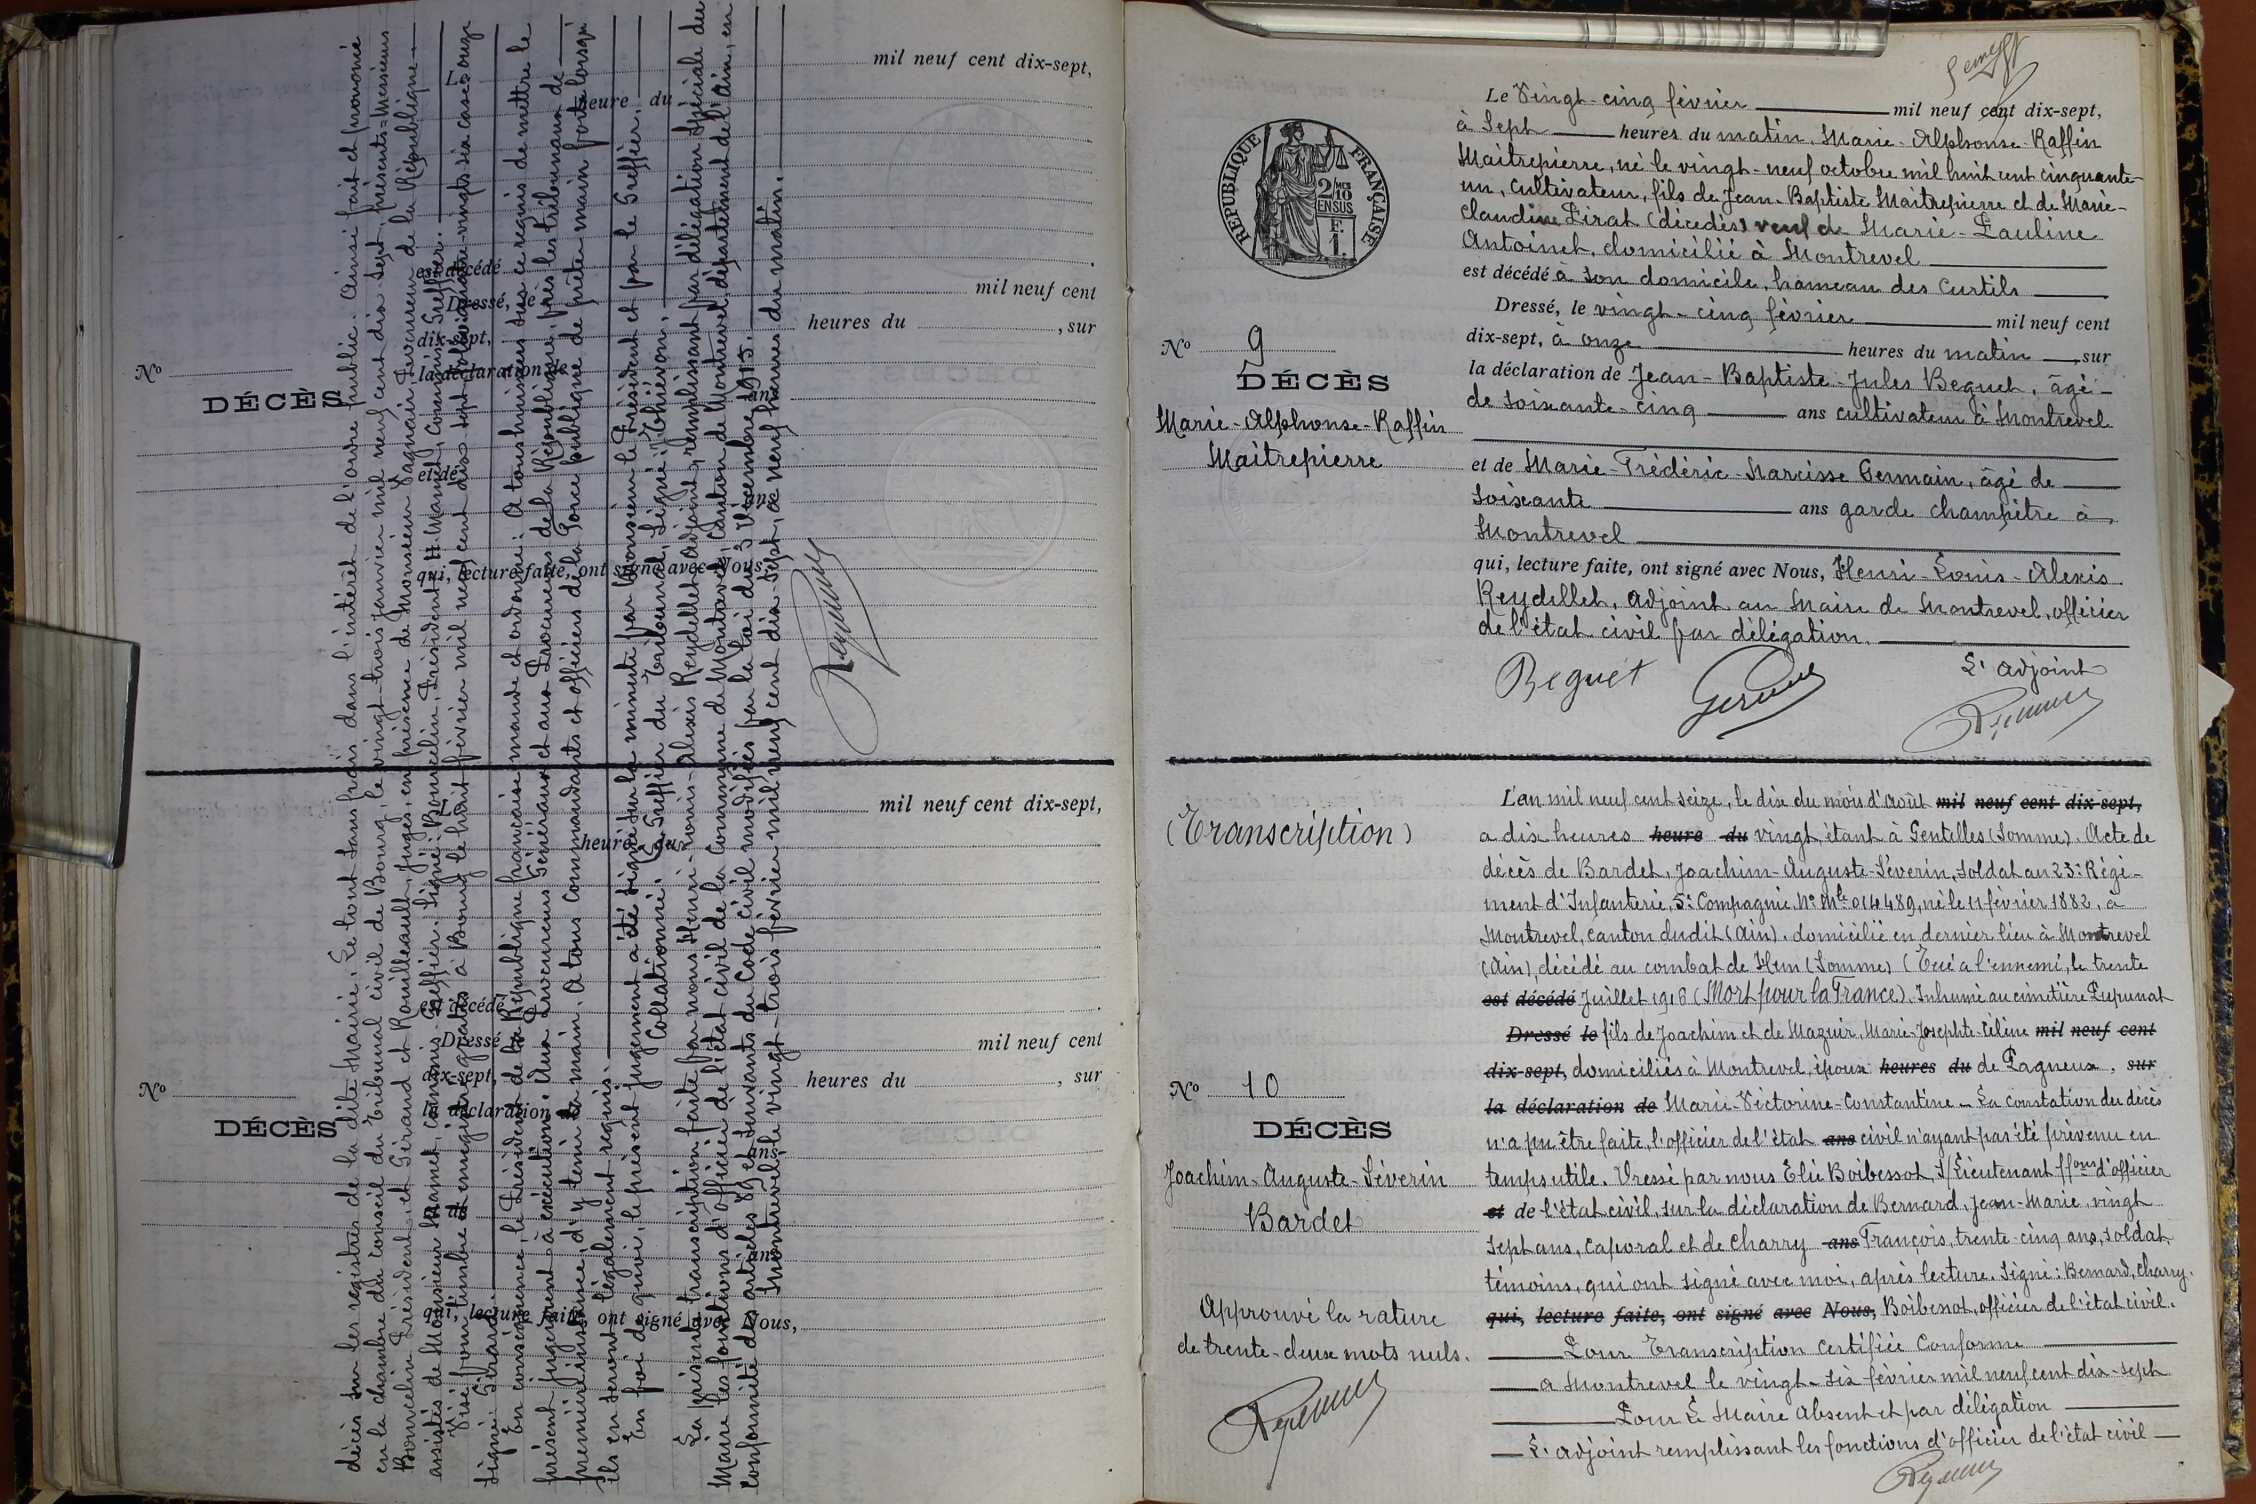 mil neuf cent dix-sept,
heure du
est décédé
Dressé, le mil neuf cent
dix-sept, heures du , sur
Nº
la déclaration de
DÉCÈS
ans
et de
ans
qui, lecture faite, ont signé avec Nous,
mil neuf cent dix-sept,
heure du
est décédé
Dressé mil neuf cent
dix-sept, heures du , sur
Nº
la déclaration de
DÉCÈS
ans
et de
ans
qui, lecture faite, ont signé avec Nous,
décès sur les registres de la dite Mairie. Le tout sans frais dans l'intérêt de l'ordre public. Ainsi fait et prononcé
en la chambre du conseil du Tribunal civil de Bourg, le vingt-trois janvier mil neuf cent dix sept, présents = Messieurs
Bourcelin, Président, et Girand et Rouilleault, Juges, en présence de Monsieur Pagnair, Procureur de la République
assistés de Monsieur Mamet, commis-Greffier. Signé: Bourcelin, Président H. Mamet, commis Greffier.
Visé pour timbre et enregistré gratis à Bourg le huit février mil neuf cent dix sept, folio quatre-vingt six case onze
Signé: Girard.
En conséquence, le Président de la République française mande et ordonne: A tous huissiers sur ce requis de mettre le
présent jugement à exécution: Aux Procureurs Généraux et aux Procureurs de la République près les tribunaux de
première instance, d'y tenir la main. A tous commandants et officiers de la force publique de prêter main forte lorsqu'
ils en seront légalement requis.
En foi de quoi, le présent jugement a été signé sur la minute par Monsieur le Président et par le Greffier.
Collationné. Le Greffier du Tribunal, Signé: Thiévon.
La présente transcription faite par nous Henri-Louis-Alexis Reydellet adjoint, remplissant par délégation spéciale du
Maire les fonctions d'officier de l'état civil de la Commune de Montrevel, Canton de Montrevel, département de l'Ain, en
conformité des articles 89 et suivants du Code civil modifiés par la loi du 3 Décembre 1915.
Montrevel le vingt-trois février mil neuf cent dix-sept, à neuf heures du matin.
Le Vingt-cinq février mil neuf cent dix-sept,
à Sept heures du matin, Marie-Alphonse-Raffin
Maitrepierre, né le vingt-neuf octobre mil huit cent cinquante-
un, cultivateur, fils de Jean-Baptiste Maitrepierre et de Marie-
Claudine Pirat (décédés) veuf de Marie-Pauline
Antoinet, domicilié à Montrevel
est décédé à son domicile, hameau des Curtils
Dressé, le vingt-cinq février mil neuf cent
dix-sept, à onze heures du matin, sur
la déclaration de Jean-Baptiste-Jules Beguet, âgé
de soixante-cinq ans cultivateur à Montrevel
et de Marie-Frédéric-Narcisse Germain, âgé de
soixante ans garde champêtre à
Montrevel
qui, lecture faite, ont signé avec Nous, Henri-Louis-Alexis
Reydellet, adjoint au Maire de Montrevel, officier
de l'état civil par délégation.
Beguet
L'adjoint
REPUBLIQUE FRANÇAISE
2/10 EN SUS
Nº 9
DÉCÈS
Marie-Alphonse-Raffin
Maitrepierre
(Transcription)
Nº 10
DÉCÈS
Joachim-Auguste-Séverin
Bardet
Approuvé la rature
de trente-deux mots nuls.
L'an mil neuf cent seize, le dix du mois d'Août mil neuf cent dix-sept,
a dix heures heure du vingt, étant à Gentelles (Somme). Acte de
décès de Bardet, Joachim-Auguste-Séverin, Soldat au 23e Régi-
ment d'Infanterie, 5e Compagnie, Nº Mle 014489, né le 11 février 1882, à
Montrevel, canton dudit (Ain). domicilié en dernier lieu à Montrevel
(Ain), décédé au combat de Hem (Somme) (Tué à l'ennemi, le trente
est décédé Juillet 1916 (Mort pour la France). Inhumé au cimetière Pupunat
Dressé le fils de Joachim et de Mazuir, Marie-Josephte-Céline mil neuf cent
dix-sept, domiciliés à Montrevel, époux heures du de Pagneux, sur
la déclaration de Marie-Victorine-Constantine - La constation du décès
n'a pu être faite, l'officier de l'état ans civil n'ayant pas été prévenu en
temps utile. Dressé par nous Elie Boibessot, S/Lieutenant ffons d'officier
et de l'état civil, sur la déclaration de Bernard, Jean-Marie, vingt
sept ans, caporal et de Charry ans François, trente-cinq ans, soldat,
témoins, qui ont signé avec moi, après lecture. Signé: Bernard, Charry.
qui, lecture faite, ont signé avec Nous, Boibessot, officier de l'état civil.
Pour Transcription Certifiée Conforme
a Montrevel le vingt-six février mil neuf cent dix-sept
Pour Le Maire Absent et par délégation
L'adjoint remplissant les fonctions d'officier de l'état civil